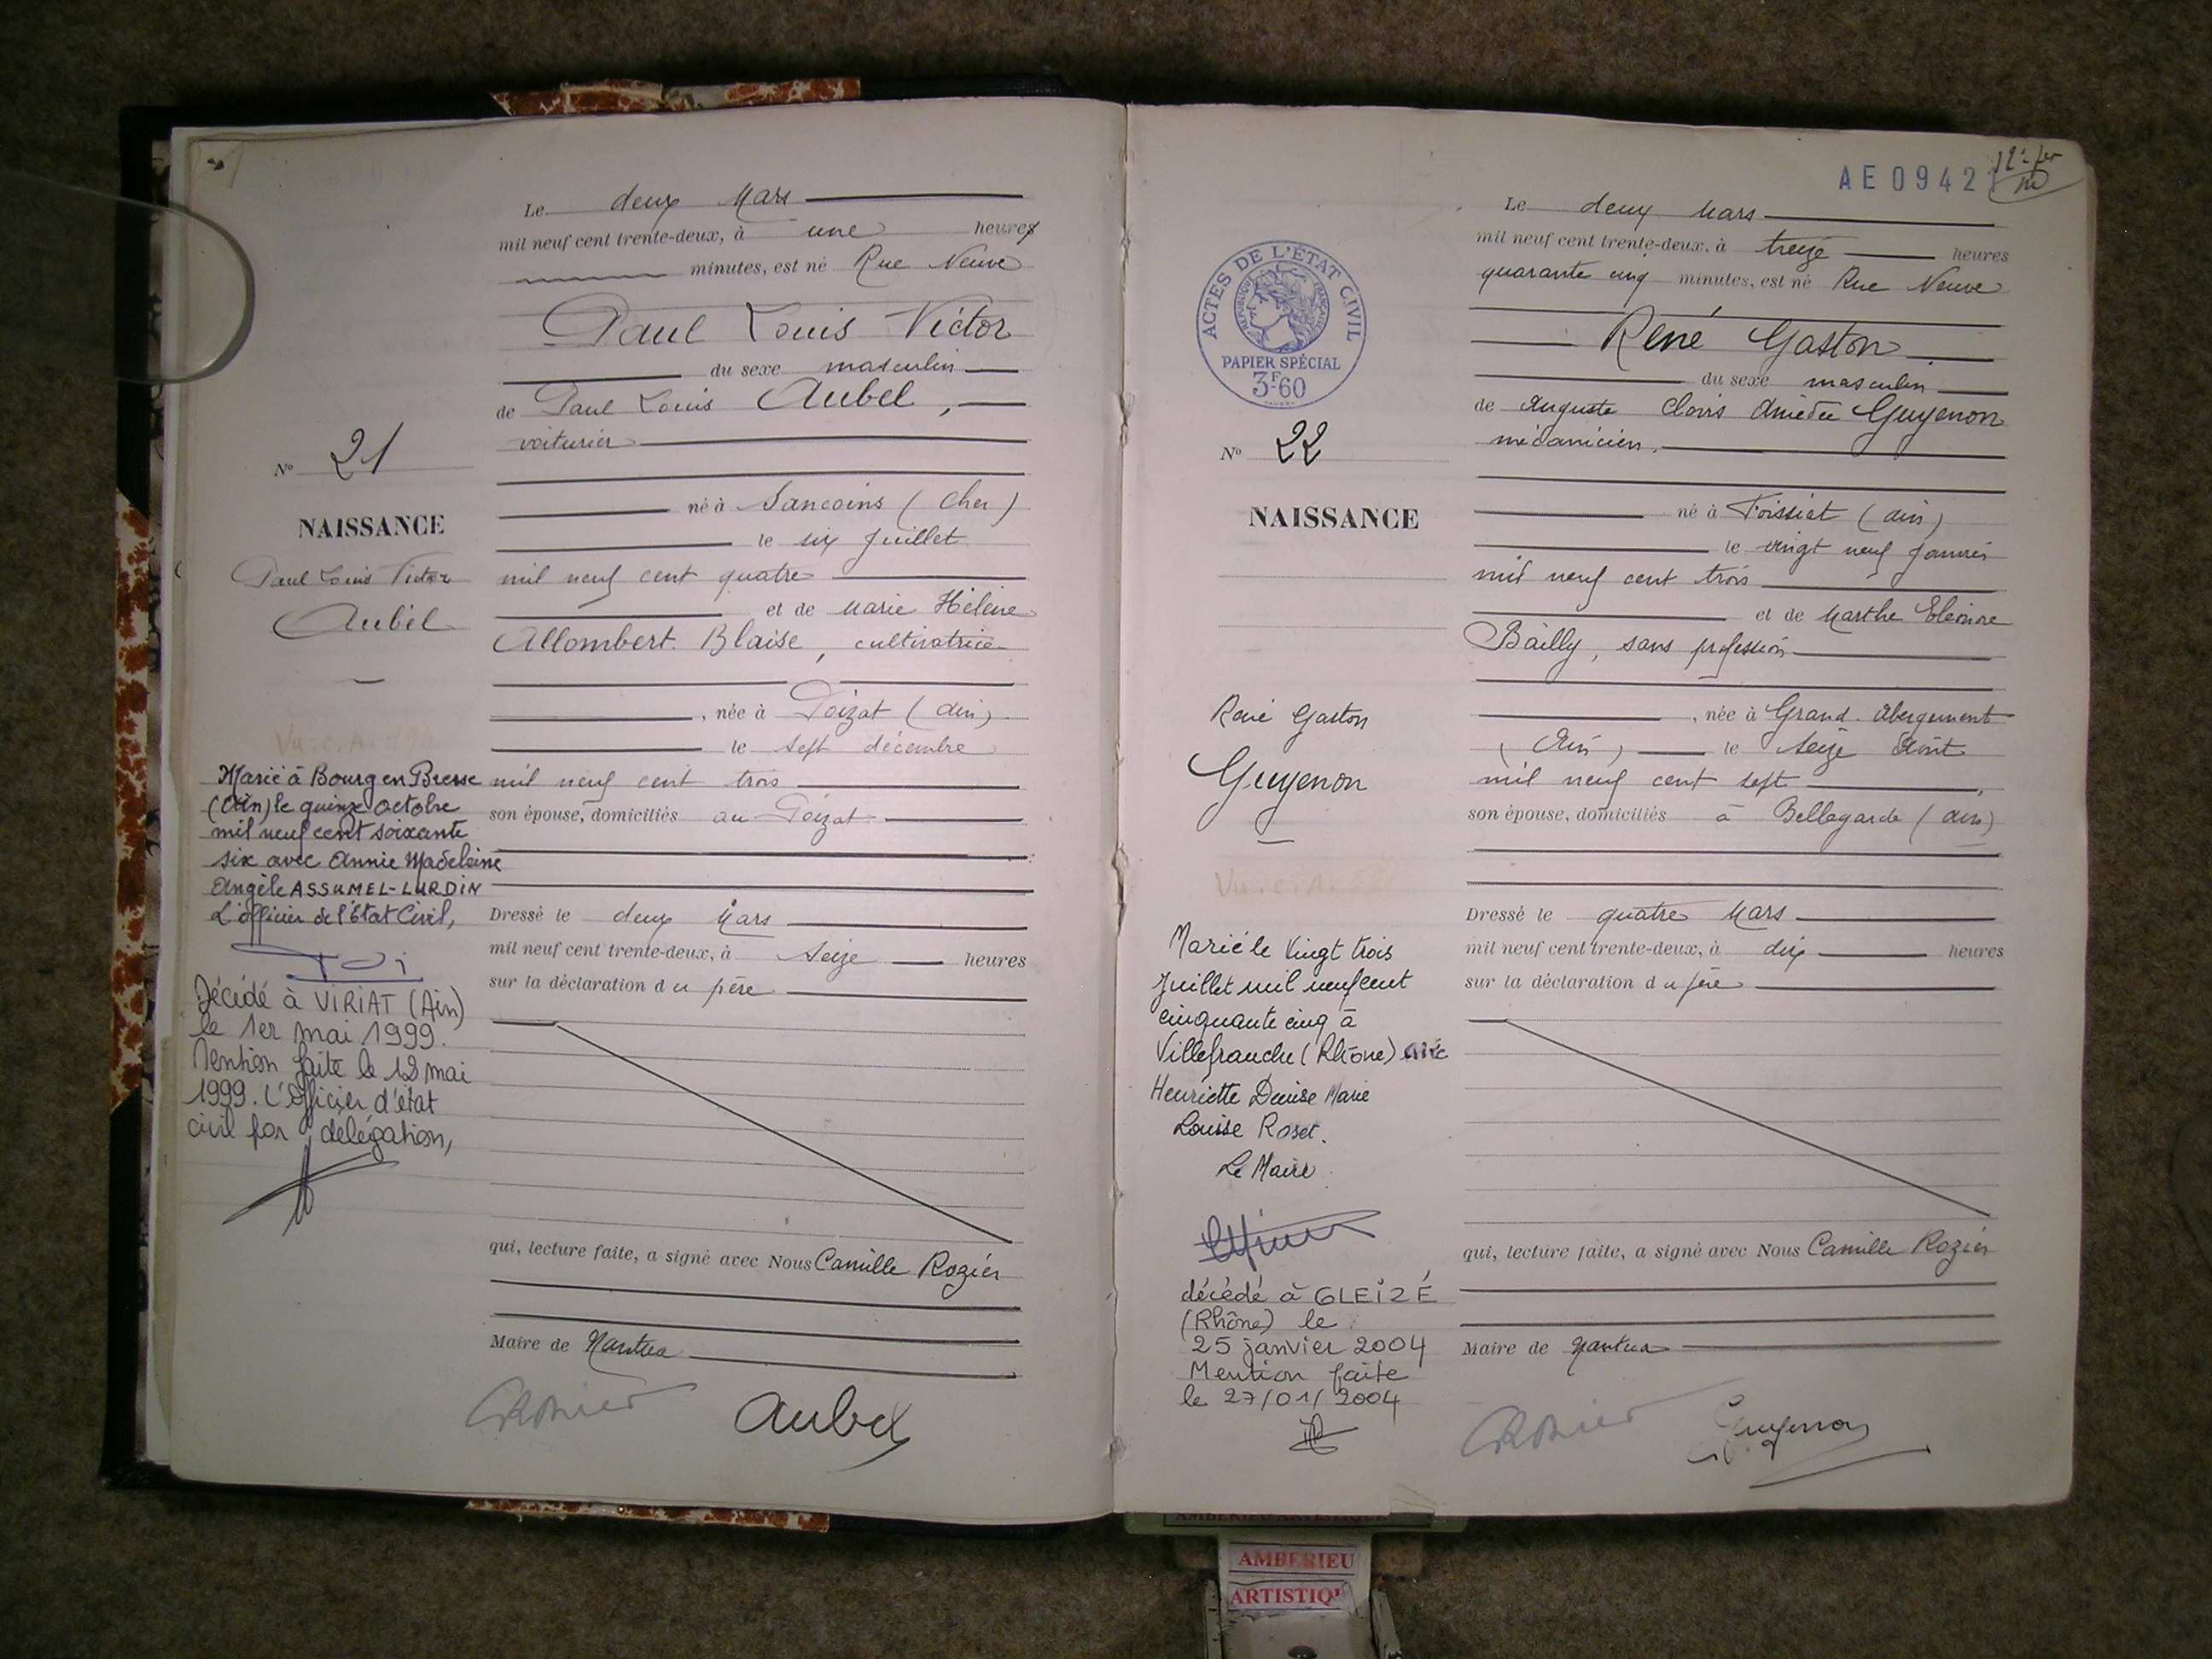 Le deux Mars
mil neuf cent trente-deux, à une heures
minutes, est né Rue Neuve
Paul Louis Victor
du sexe masculin
de Paul Louis Aubel,
voiturier
né à Sancoins (Cher)
le six Juillet
mil neuf cent quatre
et de Marie Hélène
Allombert Blaise, cultivatrice
, née à Poizat (Ain)
le sept décembre
mil neuf cent trois
son épouse, domiciliés au Poizat
Dressé le deux Mars
mil neuf cent trente-deux, à Seize heures
sur la déclaration du père
qui, lecture faite, a signé avec Nous Camille Rozier
Maire de Nantua
Aubel
No 21
NAISSANCE
Paul Louis Victor
Aubel
Marié à Bourg en Bresse
(Ain) le quinze octobre
mil neuf cent soixante
six avec Annie Madeleine
Angèle ASSUMEL-LURDIN
L'officier de l'État Civil,
Décédé à VIRIAT (Ain)
le 1er mai 1999.
Mention faite le 12 mai
1999. L'Officier d'état
civil par délégation,
AE 0942
Le deux Mars
mil neuf cent trente-deux, à treize heures
quarante cinq minutes, est né Rue Neuve
René Gaston
du sexe masculin
de Auguste Clovis Amédée Guyenon
mécanicien.
né à Foissiat (Ain)
le vingt neuf Janvier
mil neuf cent trois
et de Marthe Eléonore
Bailly, sans profession
, née à Grand Abergement
(Ain) le seize Août
mil neuf cent sept,
son épouse, domiciliés à Bellegarde (Ain)
Dressé le quatre Mars
mil neuf cent trente-deux, à dix heures
sur la déclaration du père
qui, lecture faite, a signé avec Nous Camille Rozier
Maire de Nantua
Guyenon
ACTES DE L'ÉTAT CIVIL
RÉPUBLIQUE FRANÇAISE
PAPIER SPÉCIAL
3F60
No 22
NAISSANCE
René Gaston
Guyenon
Marié le Vingt trois
Juillet mil neuf cent
cinquante cinq à
Villefranche (Rhône) avec
Henriette Denise Marie
Louise Roset.
Le Maire
décédé à GLEIZÉ
(Rhône) le
25 janvier 2004
Mention faite
le 27/01/2004
AMBERIEU ARTISTIQUE
AMBERIEU
ARTISTIQU